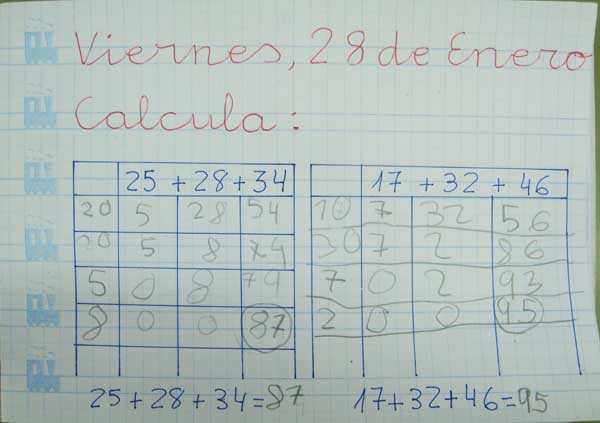 Viernes, 28 de Enero
Calcula:
25 + 28 + 34
20 5 28 54
20 5 8 74
5 0 8 79
8 0 0 87
25 + 28 + 34 = 87
17 + 32 + 46
10 7 32 56
30 7 2 86
7 0 2 93
2 0 0 95
17 + 32 + 46 = 95